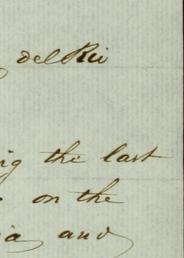 del Rio
the last
on the
and